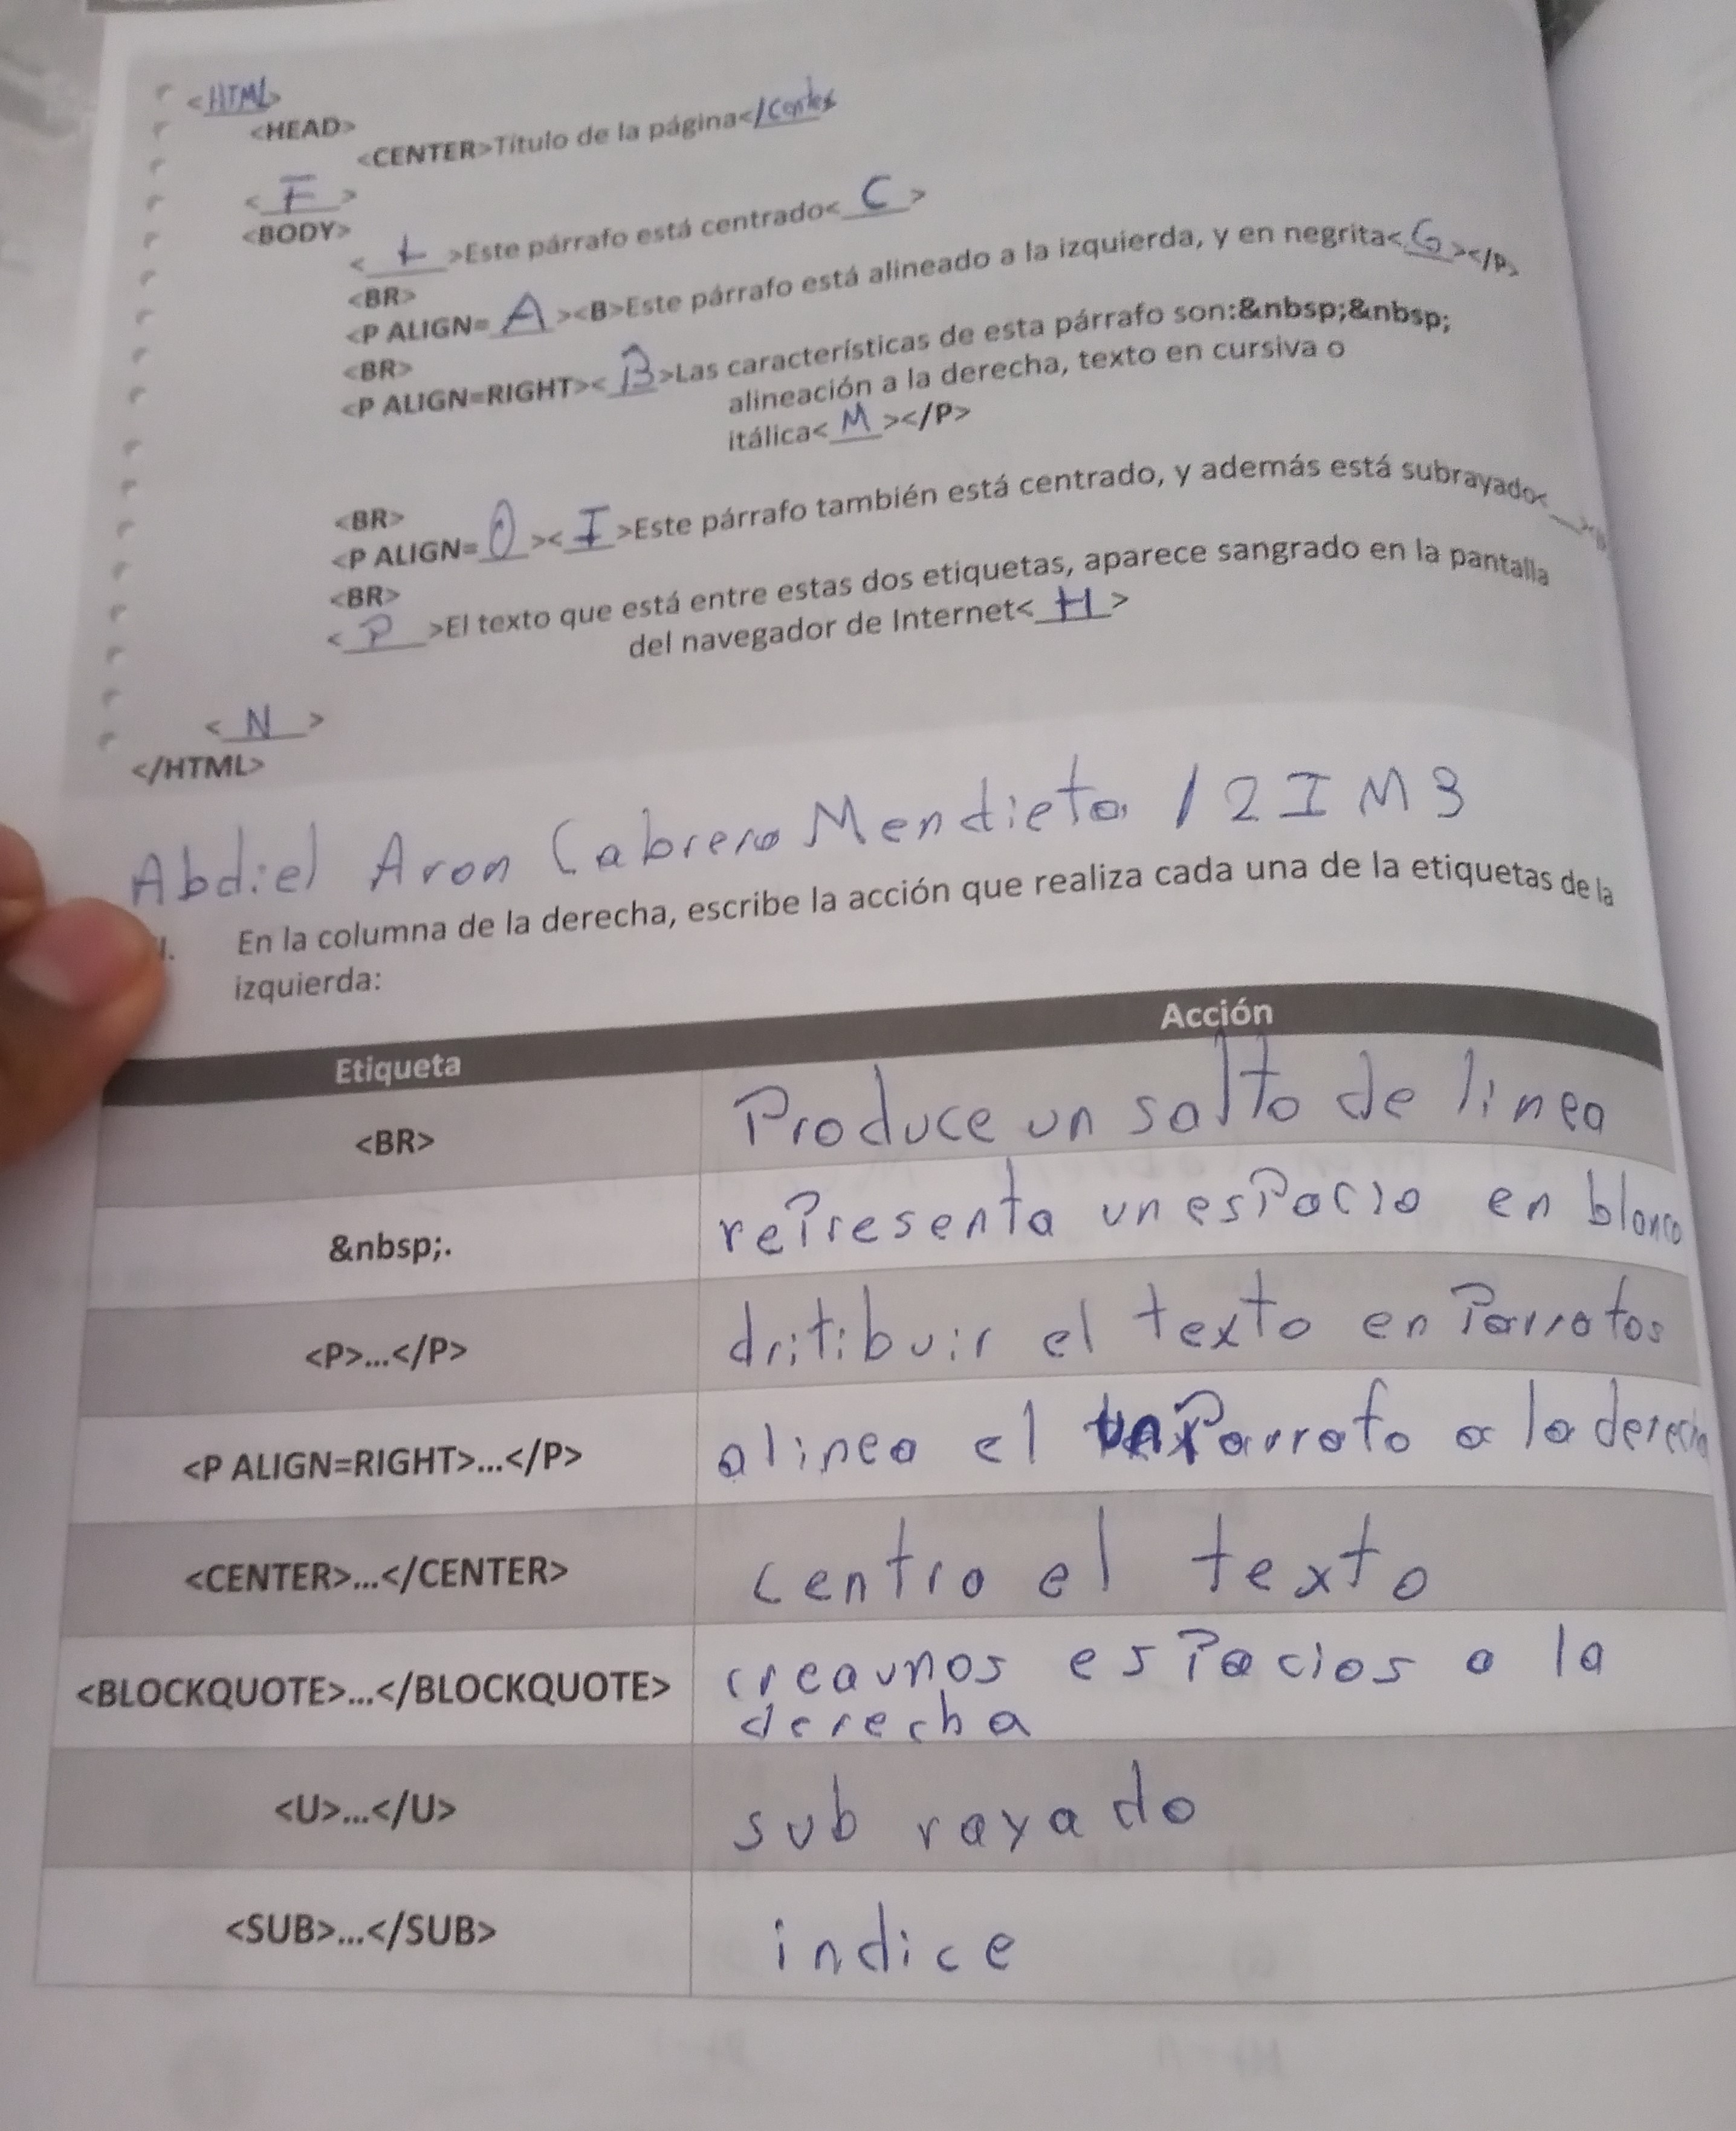 <HTML>
<HEAD>
<CENTER>Título de la página</Center>
<F>
<BODY>
<L>Este párrafo está centrado<C>
<BR>
<P ALIGN=A><B>Este párrafo está alineado a la izquierda, y en negrita<G></P>
<BR>
<P ALIGN=RIGHT><B>Las características de esta párrafo son:&nbsp;&nbsp;
alineación a la derecha, texto en cursiva o
itálica<M></P>
<BR>
<P ALIGN=O><I>Este párrafo también está centrado, y además está subrayado<___>
<BR>
<P>El texto que está entre estas dos etiquetas, aparece sangrado en la pantalla
del navegador de Internet<H>
<N>
</HTML>
Abdiel Aron Cabrera Mendieta / 2IM3
En la columna de la derecha, escribe la acción que realiza cada una de la etiquetas de la
izquierda:
Etiqueta Acción
<BR> Produce un salto de linea
&nbsp;. representa un espacio en blanco
<P>...</P> dritibuir el texto en Parrafos
<P ALIGN=RIGHT>...</P> alinea el Parrafo a la derecha
<CENTER>...</CENTER> centra el texto
<BLOCKQUOTE>...</BLOCKQUOTE> crea unos espacios a la
derecha
<U>...</U> sub rayado
<SUB>...</SUB> indice